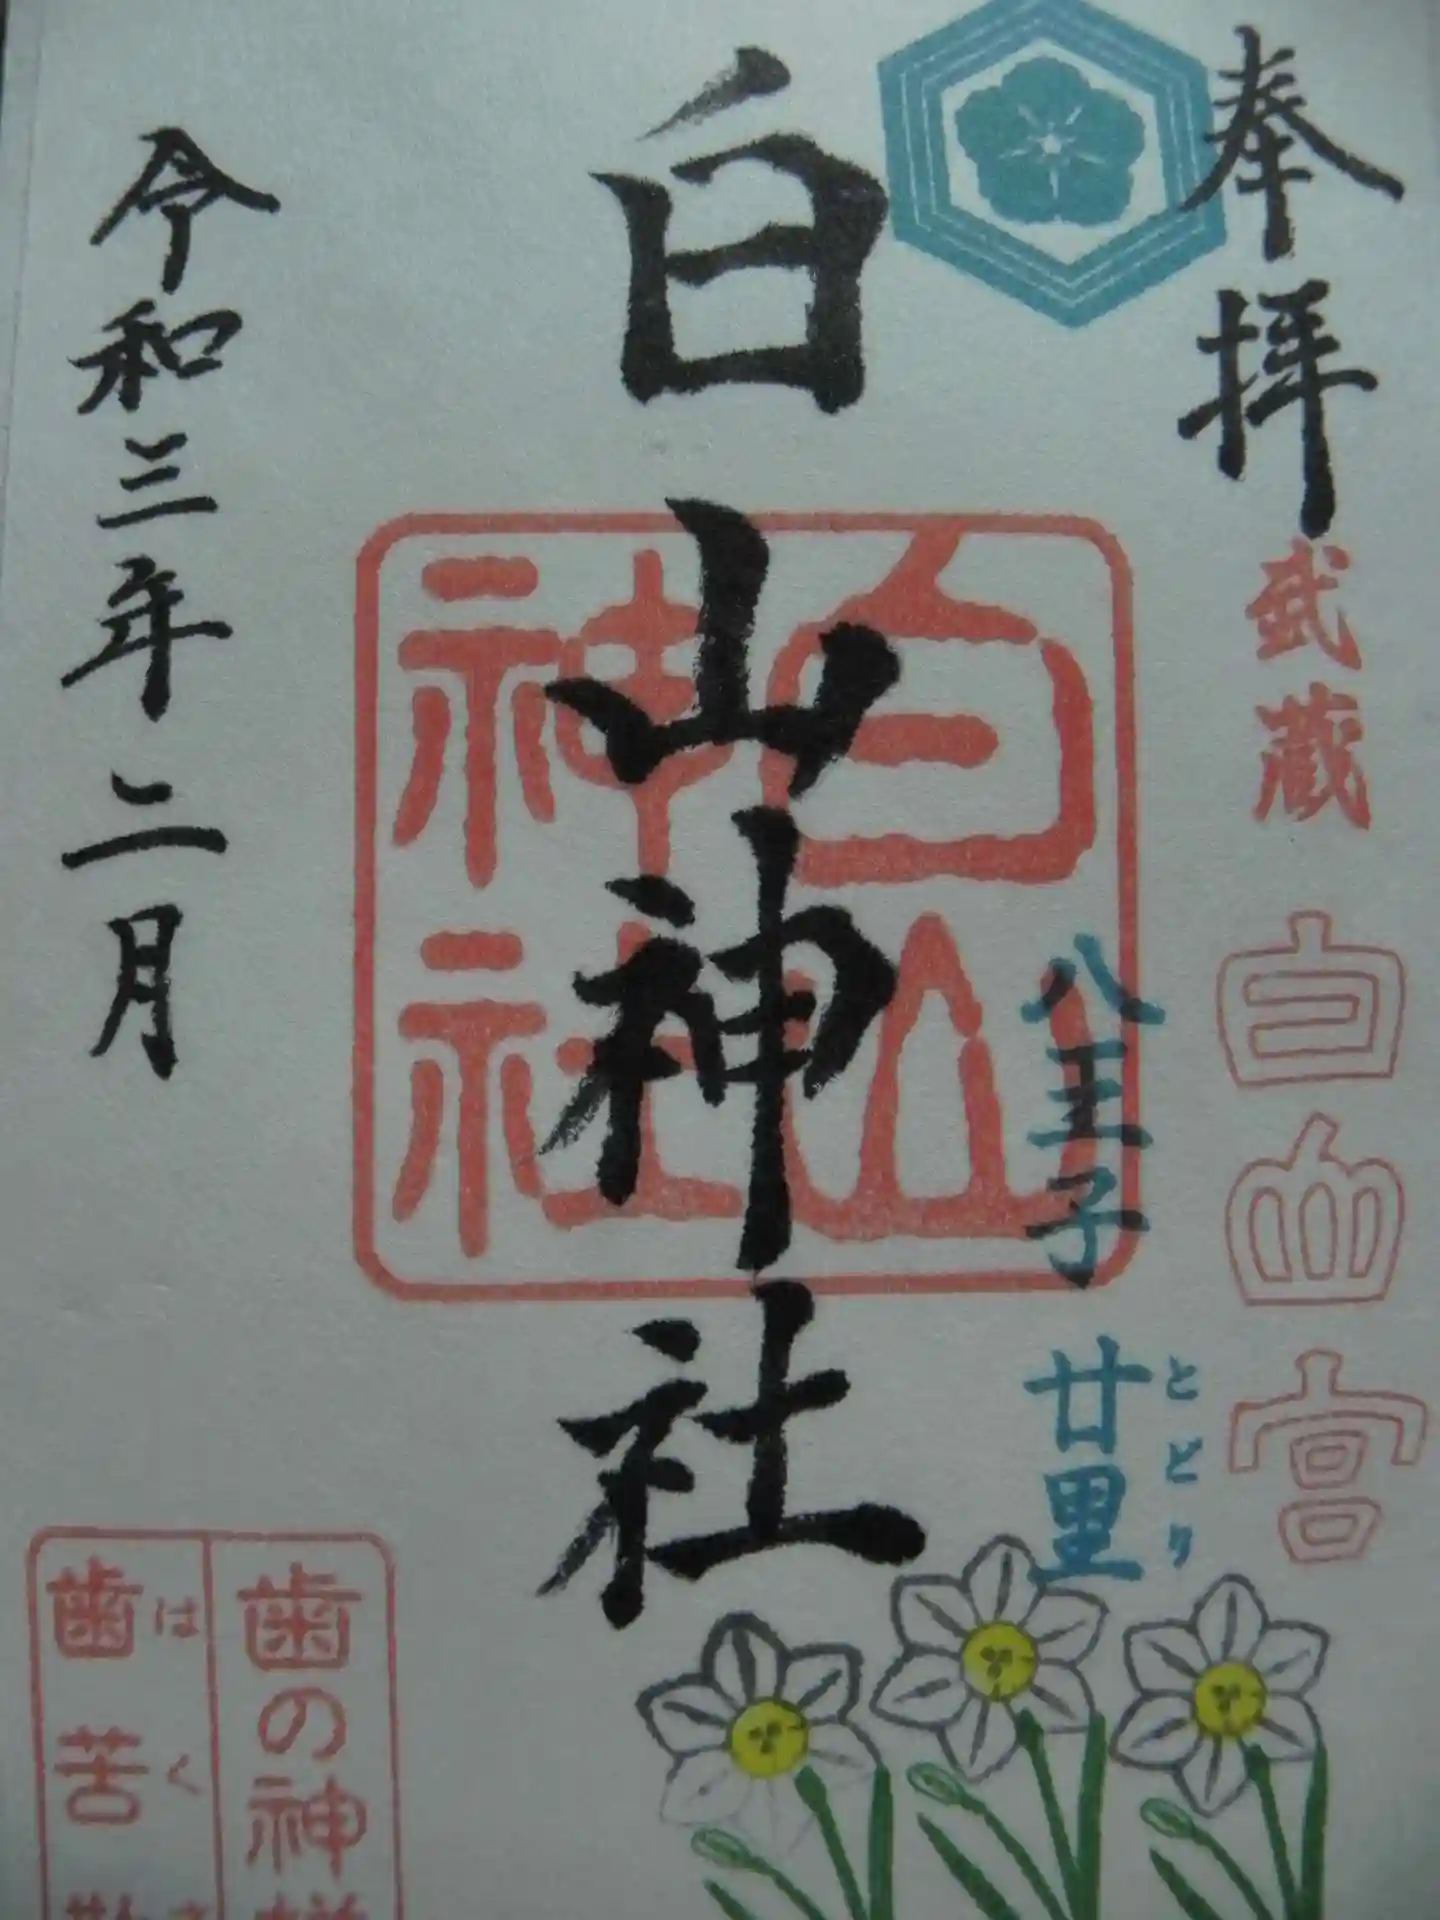 奉拝
武蔵
白山宮
八王子
廿里
とどり
白山神社
白山
神社
令和三年二月
歯の神様
歯苦散
はくさ